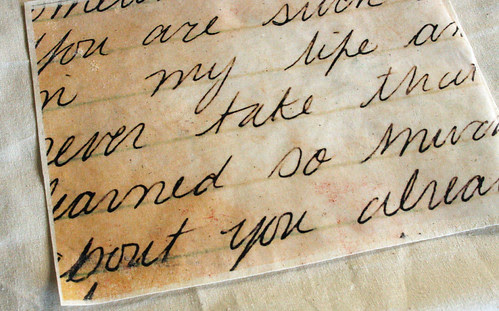 You are such
in my life an
never take
learned so much
about you alrea